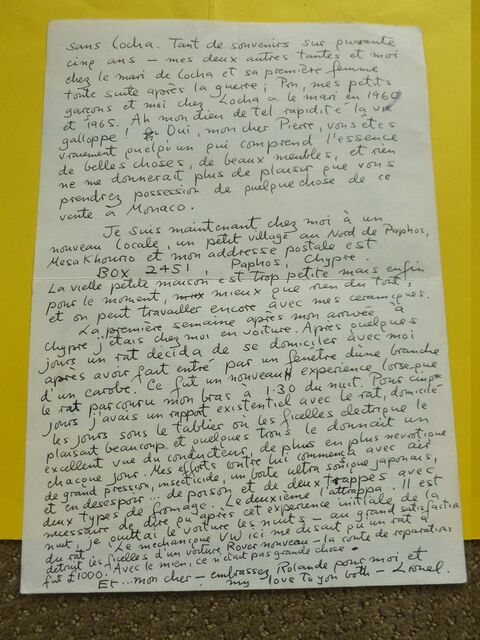 sans Cocha. Tant de souvenirs sur quarante
cinq ans – mes deux autres tantes et moi
chez le mari de Cocha et sa première femme
toute suite après la guerre; Pon, mes petits
garçons et moi chez Cocha a le mari en 1960
et 1965. Ah mon dieu de tel rapidité la vie
galloppe! Oui, mon cher Pierre, vous êtes
vraiment quelqu'un qui comprend l'essence
de belles choses, de beaux meubles, et rien
ne me donnerait plus de plaisir que vous
prendrez possession de quelque chose de ce
vente a Monaco.
Je suis maintenant chez moi à un
nouveau locale, un petit village au Nord de Paphos,
Mesa Khourio et mon addresse postale est
BOX 2451, Paphos, Chypre.
La vielle petite maison est trop petite mais enfin
pour le moment, mieux que rien du tout,
et on peut travailler encore avec mes ceramiques.
La première semaine après mon arrivée à
Chypre j'étais chez moi en voiture. Après quelques
jours un rat décida de se domicilier avec moi
après avoir fait entré par un fenêtre d'une branche
d'un carobe. Ce fut un nouveau experience lorseque
le rat parcouru mon bras a 1.30 du nuit. Pour cinq
jours j'avais un rapport existentiel avec le rat, domicilié
les jours sous le tablier où les ficelles electrique le
plaisant beaucoup et quelques trous le donnait un
excellent vue du conducteur, de plus en plus nevrotique
chaque jour. Mes efforts contre lui commença avec air
de grand pression, insecticide, un boite ultra sonique japonais,
et en desespoir... de poison et de deux trappes avec
deux types de fromage. Le deuxième l'attrappa. Il est
necessaire de dire qu'après cet experience initiale de la
nuit, je quittai le voiture les nuits – au grand satisfaction
du rat. Le mechanique VW ici me disait qu'un rat a
detruit les ficelles d'un voiture Rover nouveau – la conte de reparations
fut £1000. Avec le mien, ce n'etait pas grande chose.
Et... mon cher – embrassez Rolande pour moi et
my love to you both – Lionel.